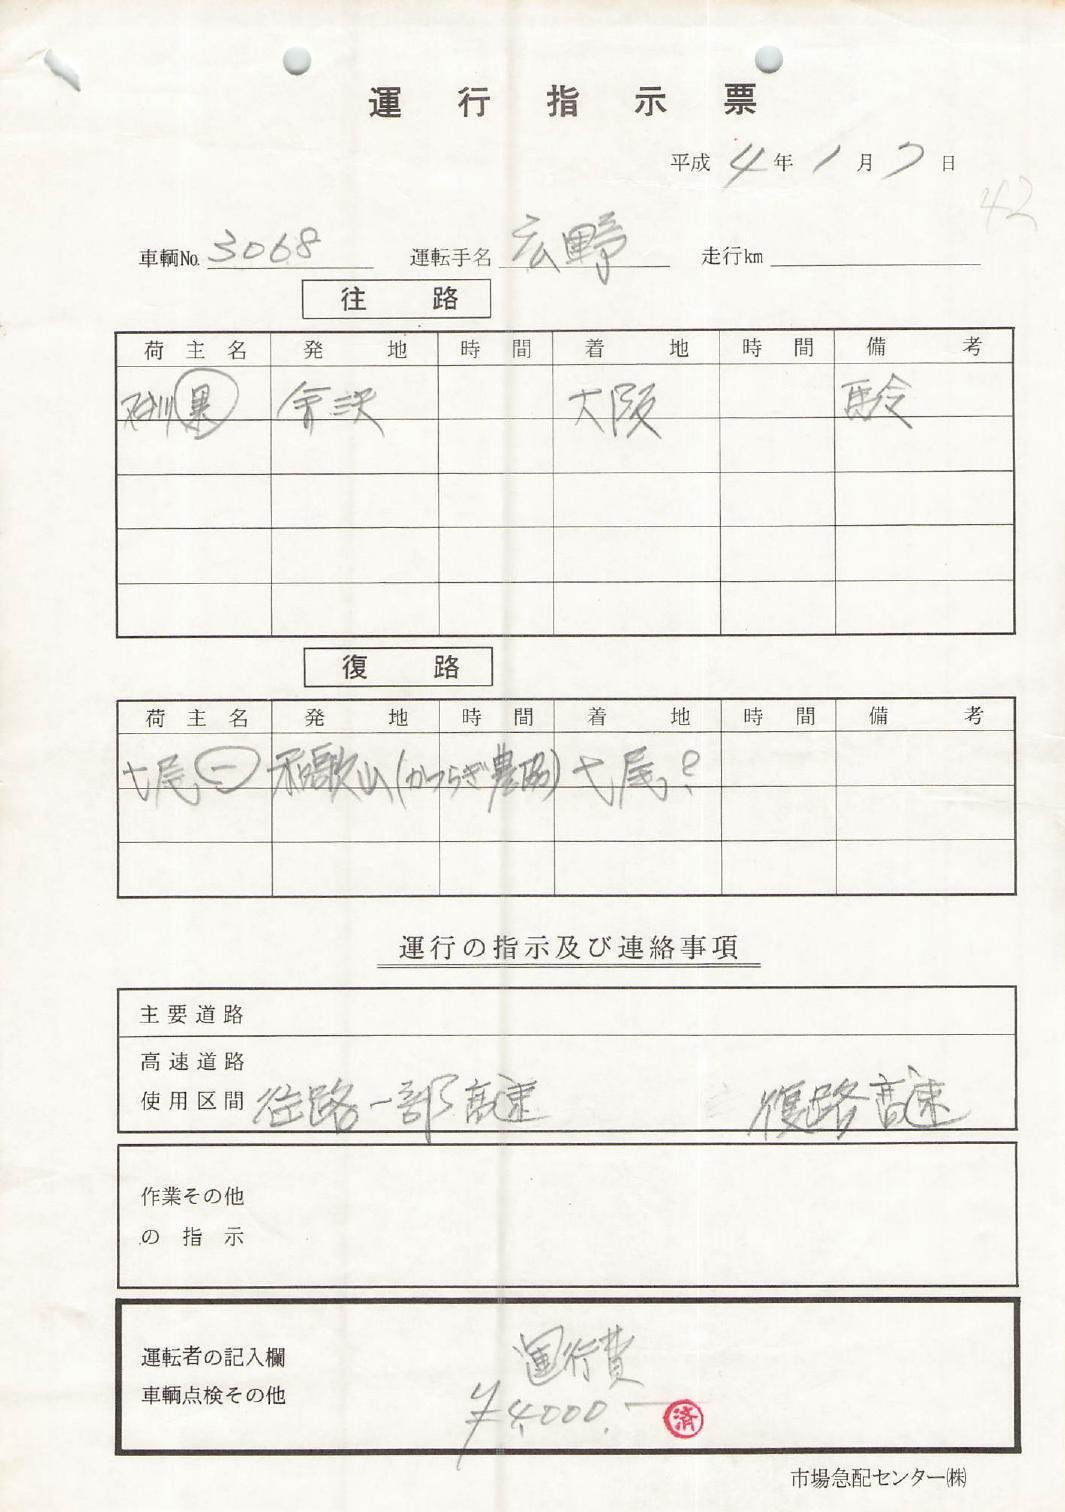 運行指示票
平成 4年 1月 7日
42
車輌No. 3068 運転手名 広野 走行km
往路
荷主名 発地 時間 着地 時間 備考
石川 金沢 大阪 馬令
復路
荷主名 発地 時間 着地 時間 備考
七尾㊀ 和歌山(かつらぎ農協) 七尾?
運行の指示及び連絡事項
主要道路
高速道路
使用区間 往路一部高速 復路高速
作業その他
の指示
運転者の記入欄 運行費
車輌点検その他 ¥4,000.- 済
市場急配センター㈱